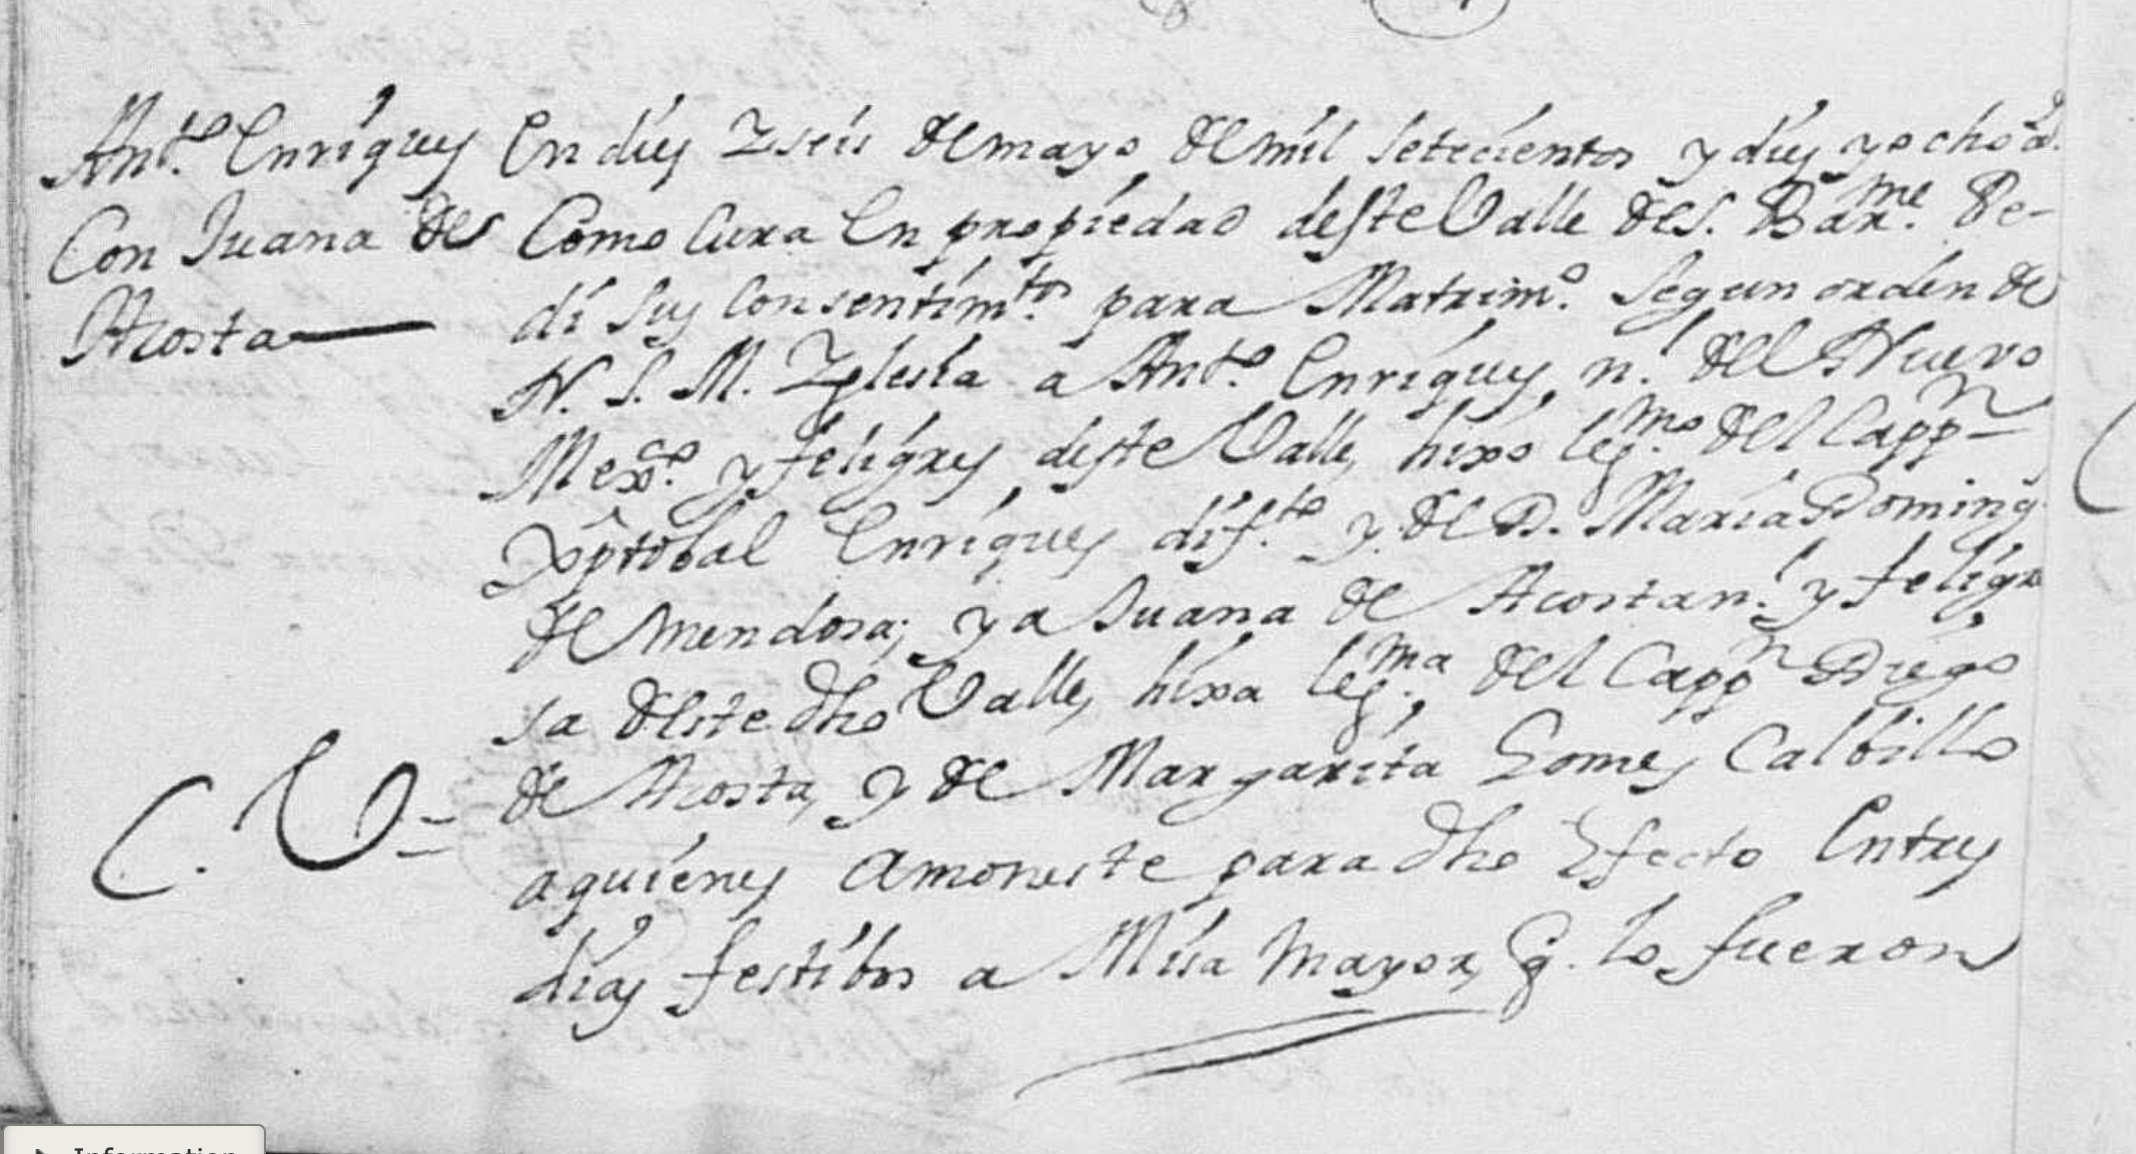 Ant.º Enriques
Con Juana de
Acosta
En dies Yseis de mayo de mil setecientos y dies y ocho a.s
Como Cura En propiedad deste Valle de S. Bar.me Pe-
di sus Consentim.tos para Matrim.º segun orden de
N. S. M. Yglesia a Ant.º Enriques, n.l del Nuevo
Mex.co y feligres deste Valle, hixo leg.mo del Capp.n
Xptobal Enriques dif.to y de D. Maria Doming
de Mendosa; y a Juana de Acosta n.l y feligre
sa deste dho Valle, hixa leg.ma del Capp.n Diego
de Acosta, y de Margarita Gomes Calbillo
aquienes amoneste para dho Efecto En tres
dias festibos a Misa Mayor, q. lo fueron
C. V=
Information